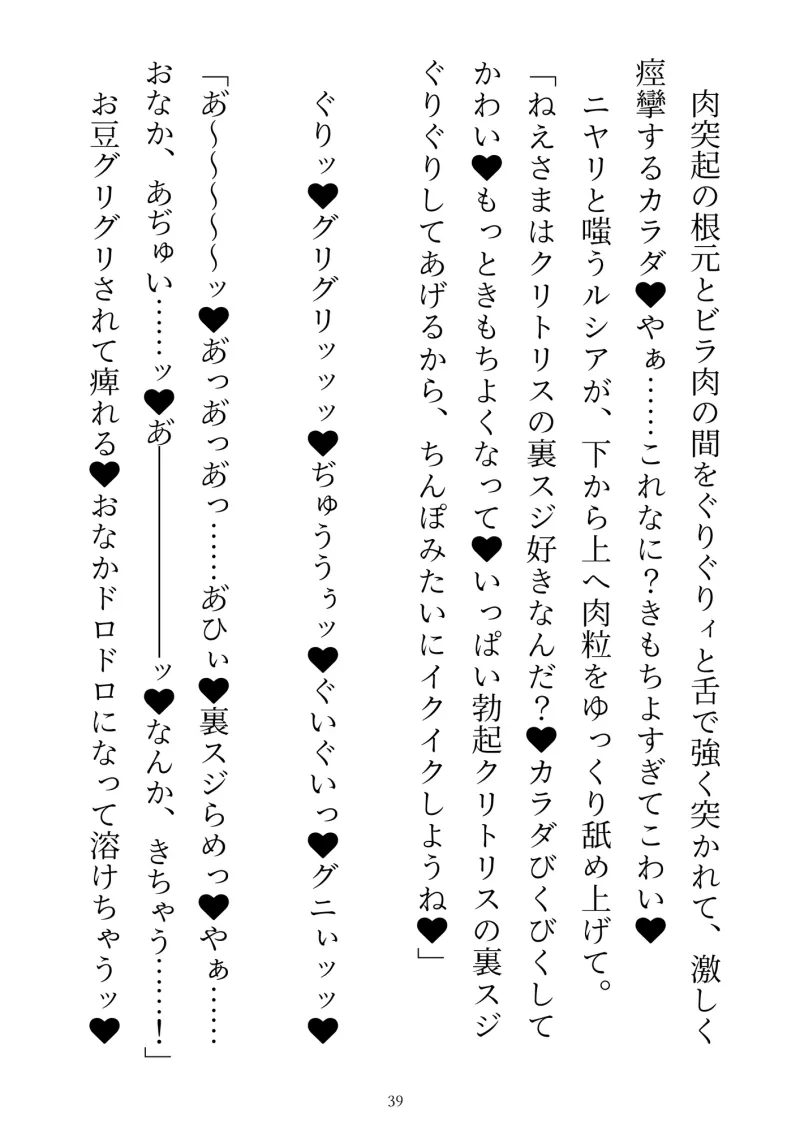 肉突起の根元とビラ肉の間をぐりぐりィと舌で強く突かれて、激しく
痙攣するカラダ♥やぁ……これなに？きもちよすぎてこわい♥
ニヤリと嗤うルシアが、下から上へ肉粒をゆっくり舐め上げて。
「ねえさまはクリトリスの裏スジ好きなんだ？♥カラダびくびくして
かわい♥もっときもちよくなって♥いっぱい勃起クリトリスの裏スジ
ぐりぐりしてあげるから、ちんぽみたいにイクイクしようね♥」
ぐりッ♥グリグリッッッ♥ぢゅううぅッ♥ぐいぐいっ♥グニぃッッ♥
「あ゙～～～～～ッ♥あ゙っあ゙っあ゙っ……あ゙ひぃ♥裏スジらめっ♥やぁ……
おなか、あぢゅい……ッ♥あ゙――――――ッ♥なんか、きちゃう……！」
お豆グリグリされて痺れる♥おなかドロドロになって溶けちゃうッ♥
39